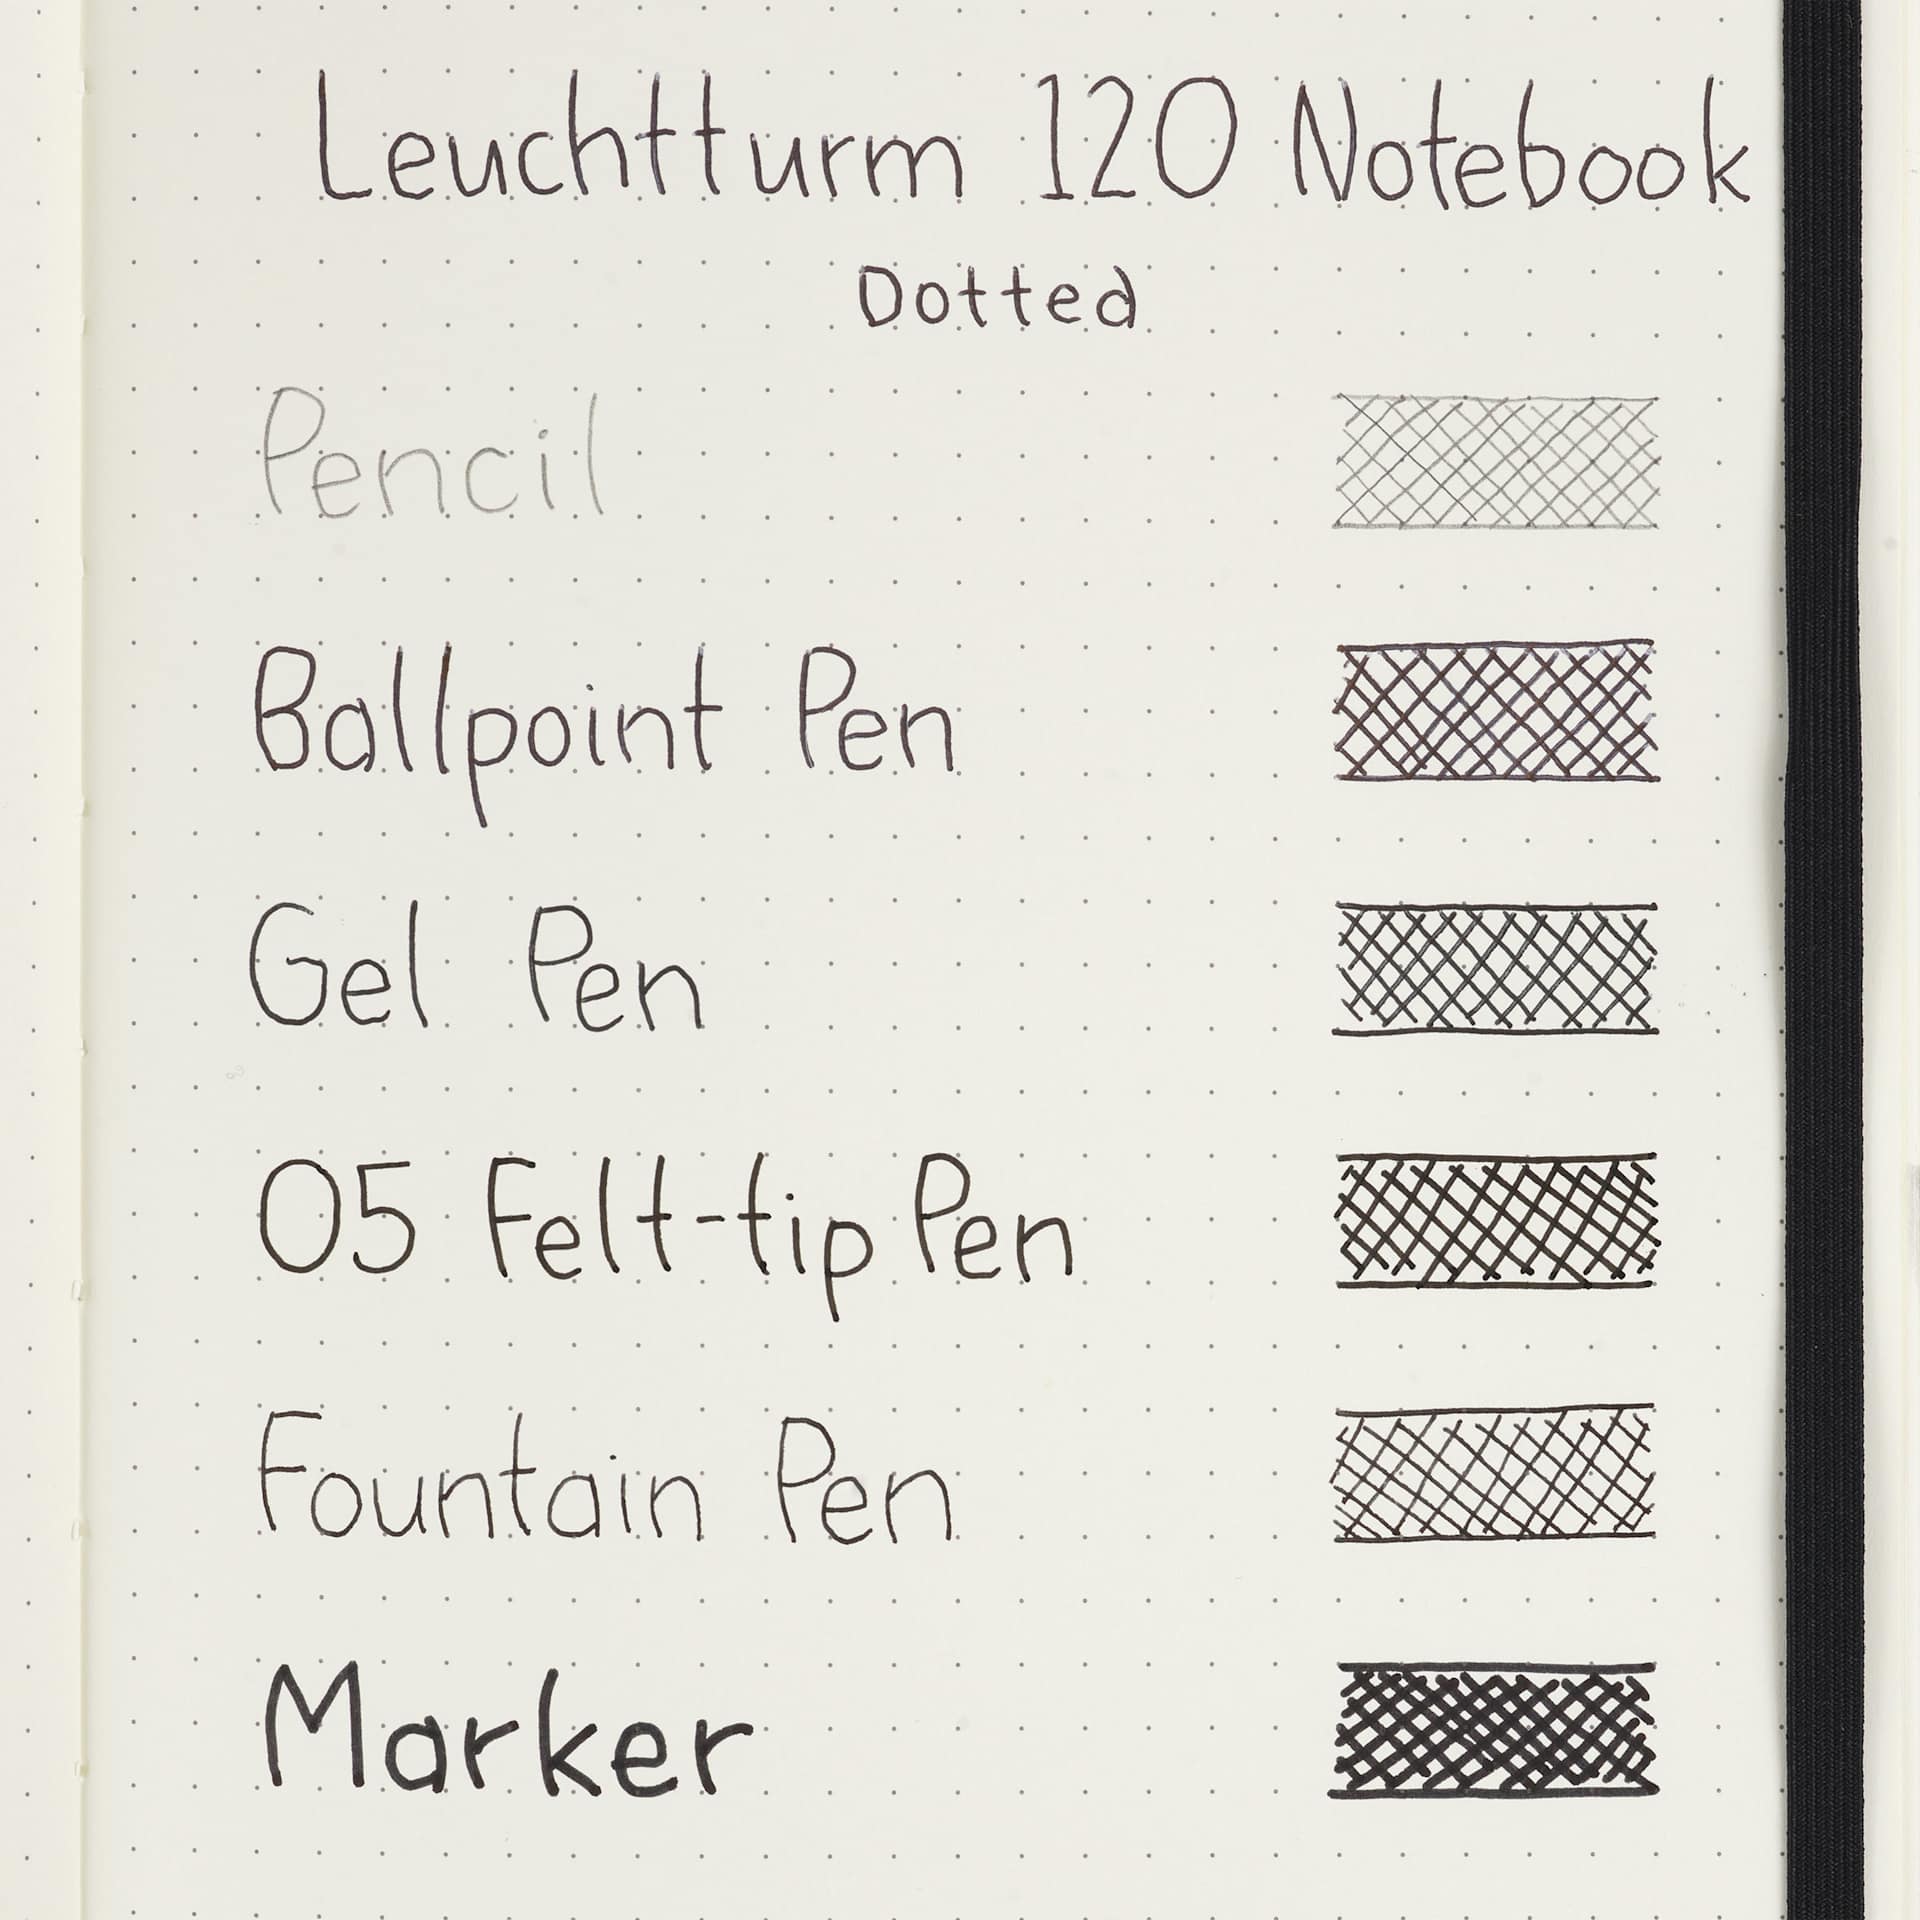 Leuchtturm 120 Notebook
Dotted
Pencil
Ballpoint Pen
Gel Pen
05 Felt-tip Pen
Fountain Pen
Marker